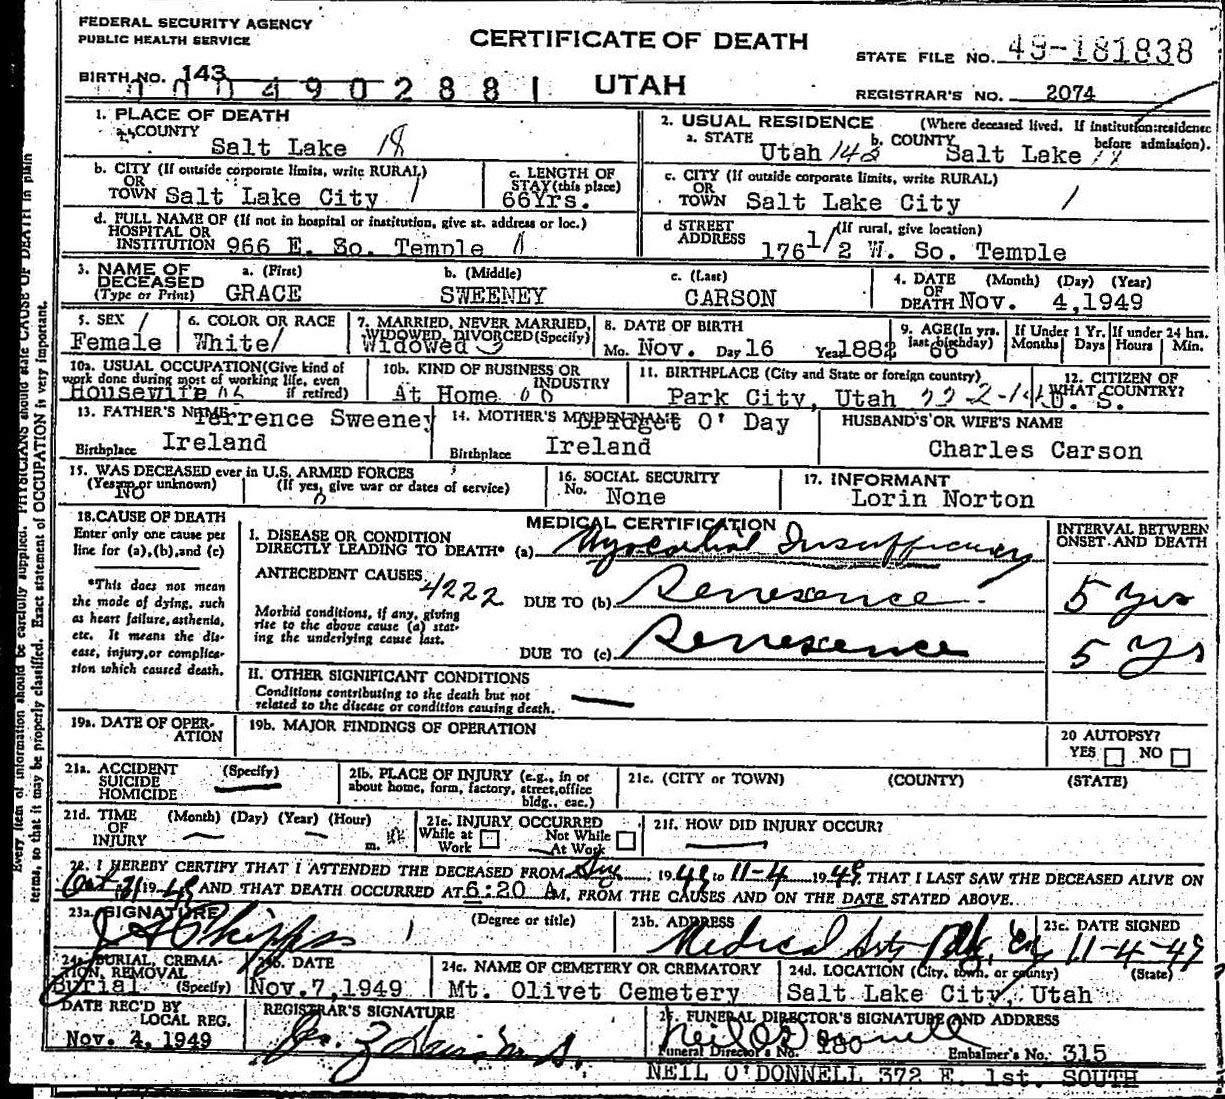 FEDERAL SECURITY AGENCY
PUBLIC HEALTH SERVICE
CERTIFICATE OF DEATH
UTAH
STATE FILE NO. 49-181838
BIRTH NO. 143
1004902881
REGISTRAR'S NO. 2074
1. PLACE OF DEATH
a. COUNTY
Salt Lake 18
2. USUAL RESIDENCE (Where deceased lived. If institution:residence before admission).
a. STATE Utah 143 b. COUNTY Salt Lake
b. CITY (If outside corporate limits, write RURAL)
OR
TOWN Salt Lake City 1
c. LENGTH OF
STAY(this place)
66Yrs.
c. CITY (If outside corporate limits, write RURAL)
OR
TOWN Salt Lake City 1
d. FULL NAME OF (If not in hospital or institution, give st. address or loc.)
HOSPITAL OR
INSTITUTION 966 E. So. Temple
d STREET (If rural, give location)
ADDRESS 176 1/2 W. So. Temple
3. NAME OF
DECEASED
(Type or Print)
a. (First)
GRACE
b. (Middle)
SWEENEY
c. (Last)
CARSON
4. DATE (Month) (Day) (Year)
OF
DEATH Nov. 4,1949
5. SEX 1
Female
6. COLOR OR RACE
White
7. MARRIED, NEVER MARRIED,
WIDOWED, DIVORCED(Specify)
Widowed 3
8. DATE OF BIRTH
Mo. Nov. Day 16 Year 1882
9. AGE(In yrs.
last birthday)
66
If Under 1 Yr.
Months Days
If under 24 hrs.
Hours Min.
10a. USUAL OCCUPATION(Give kind of
work done during most of working life, even
if retired)
Housewife
10b. KIND OF BUSINESS OR
INDUSTRY
At Home
11. BIRTHPLACE (City and State or foreign country)
Park City, Utah
12. CITIZEN OF
WHAT COUNTRY?
U. S.
13. FATHER'S NAME
Terrence Sweeney
Birthplace Ireland
14. MOTHER'S MAIDEN NAME
Bridget O' Day
Birthplace Ireland
HUSBAND'S OR WIFE'S NAME
Charles Carson
15. WAS DECEASED ever in U.S. ARMED FORCES
(Yes, no, or unknown) (If yes, give war or dates of service)
No
16. SOCIAL SECURITY
No. None
17. INFORMANT
Lorin Norton
18. CAUSE OF DEATH
Enter only one cause per
line for (a),(b),and (c)
*This does not mean
the mode of dying, such
as heart failure, asthenia,
etc. It means the dis-
ease, injury,or complica-
tion which caused death.
MEDICAL CERTIFICATION
I. DISEASE OR CONDITION
DIRECTLY LEADING TO DEATH* (a) Myocardial Insufficiency
ANTECEDENT CAUSES
4222
Morbid conditions, if any, giving
rise to the above cause (a) stat-
ing the underlying cause last.
DUE TO (b) Senescence
DUE TO (c) Senescence
INTERVAL BETWEEN
ONSET AND DEATH
5 yrs
5 Yrs
II. OTHER SIGNIFICANT CONDITIONS
Conditions contributing to the death but not
related to the disease or condition causing death.
19a. DATE OF OPER-
ATION
19b. MAJOR FINDINGS OF OPERATION
20 AUTOPSY?
YES NO
21a. ACCIDENT (Specify)
SUICIDE
HOMICIDE
21b. PLACE OF INJURY (e.g., in or
about home, form, factory, street,office
bldg., eac.)
21c. (CITY or TOWN) (COUNTY) (STATE)
21d. TIME (Month) (Day) (Year) (Hour)
OF
INJURY m.
21e. INJURY OCCURRED
While at Work Not While At Work
21f. HOW DID INJURY OCCUR?
22. I HEREBY CERTIFY THAT I ATTENDED THE DECEASED FROM Aug 1949 to 11-4 1949, THAT I LAST SAW THE DECEASED ALIVE ON
Oct 31 1949 AND THAT DEATH OCCURRED AT 6:20 A M, FROM THE CAUSES AND ON THE DATE STATED ABOVE.
23a. SIGNATURE (Degree or title)
J A Phipps
23b. ADDRESS
Medical Arts Bldg, City
23c. DATE SIGNED
11-4-49
24a. BURIAL, CREMA-
TION, REMOVAL
Burial (Specify)
24b. DATE
Nov.7,1949
24c. NAME OF CEMETERY OR CREMATORY
Mt. Olivet Cemetery
24d. LOCATION (City, town, or county) (State)
Salt Lake City, Utah
DATE REC'D BY
LOCAL REG.
Nov. 4, 1949
REGISTRAR'S SIGNATURE
25. FUNERAL DIRECTOR'S SIGNATURE AND ADDRESS
Neil O'Donnell
Funeral Director's No. 180 Embalmer's No. 315
NEIL O'DONNELL 372 E. 1st. SOUTH
Every item of information should be carefully supplied. PHYSICIANS should state CAUSE OF DEATH in plain
terms, so that it may be properly classified. Exact statement of OCCUPATION is very important.